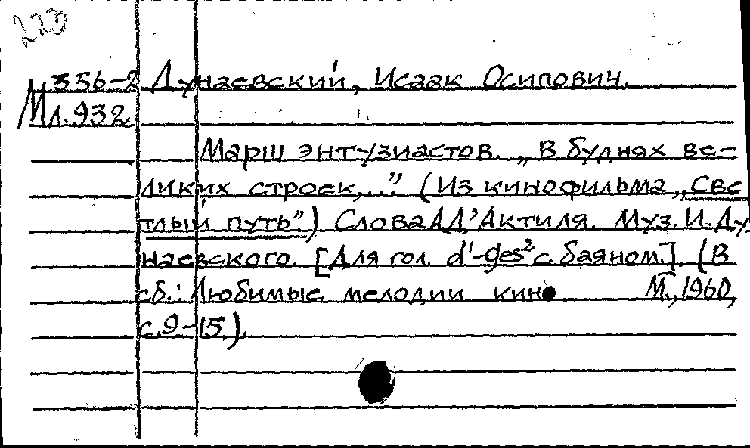 223
м356-2 Дунаевский, Исаак Осипович.
Мл.932
Марш энтузиастов. „В буднях ве-
ликих строек,..." (Из кинофильма „Све
тлый путь") Слова А.Д'Актиля. Муз. И. Ду
наевского. [Для гол. d¹-ges² с баяном.]. (В
сб.: Любимые мелодии кино М., 1960,
с.9-15).